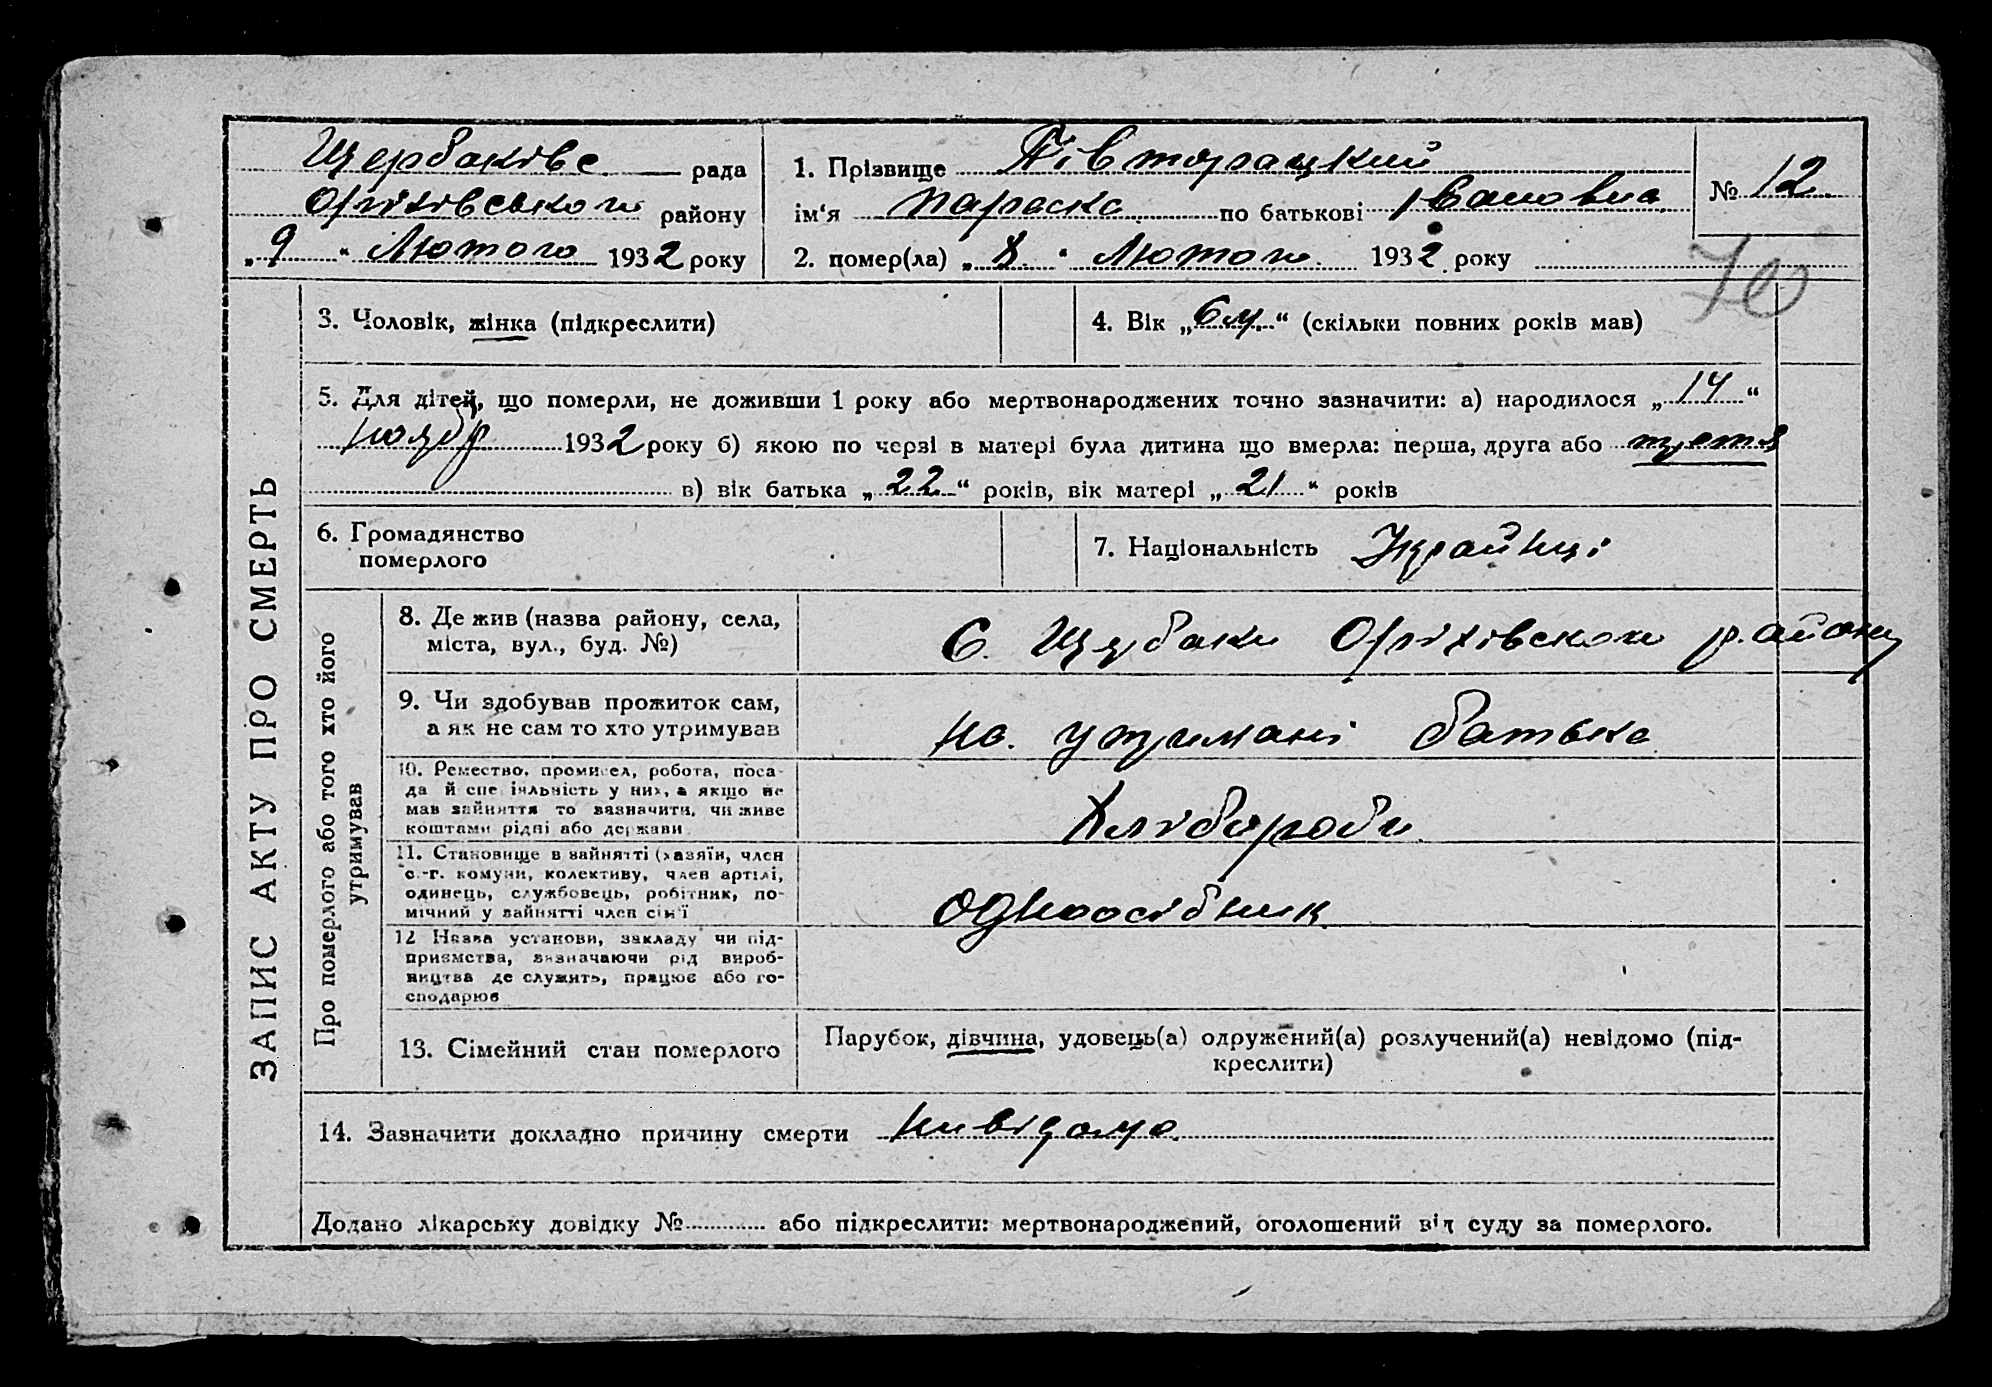 Щербаківс рада
Оріхівського району
„9“ Лютого 1932 року
1. Прізвище Півторацкий
ім‘я Параска по батькові Івановна
2. помер(ла) „8“ Лютого 1932 року
№ 12
70
3. Чоловік, жінка (підкреслити)
4. Вік „6 м.“ (скільки повних років мав)
5. Для дітей, що померли, не доживши 1 року або мертвонароджених точно зазначити: а) народилося „14“
ноябр 1932 року б) якою по черзі в матері була дитина що вмерла: перша, друга або третя
в) вік батька „22“ років, вік матері „21“ років
6. Громадянство
померлого
7. Національність Українці
ЗАПИС АКТУ ПРО СМЕРТЬ
Про померлого або того хто його
утримував
8. Де жив (назва району, села,
міста, вул., буд. №)
С. Щербаки Оріхівского району
9. Чи здобував прожиток сам,
а як не сам то хто утримував
на утримані батька
10. Ремество, промисел, робота, поса-
да й спеціяльність у них, а якщо не
мав зайняття то зазначити, чи живе
коштами рідні або держави
Хлібороби
11. Становище в зайнятті (хазяїн, член
с.-г. комуни, колективу, член артілі,
одинець, службовець, робітник, по-
мічний у зайнятті член сім‘ї
одноосібник
12 Назва установи, закладу чи під-
приємства, визначаючи рід вироб-
ництва де служить, працює або го-
сподарює
13. Сімейний стан померлого
Парубок, дівчина, удовець(а) одружений(а) розлучений(а) невідомо (під-
креслити)
14. Зазначити докладно причину смерти невідомо
Додано лікарську довідку № або підкреслити: мертвонароджений, оголошений від суду за померлого.